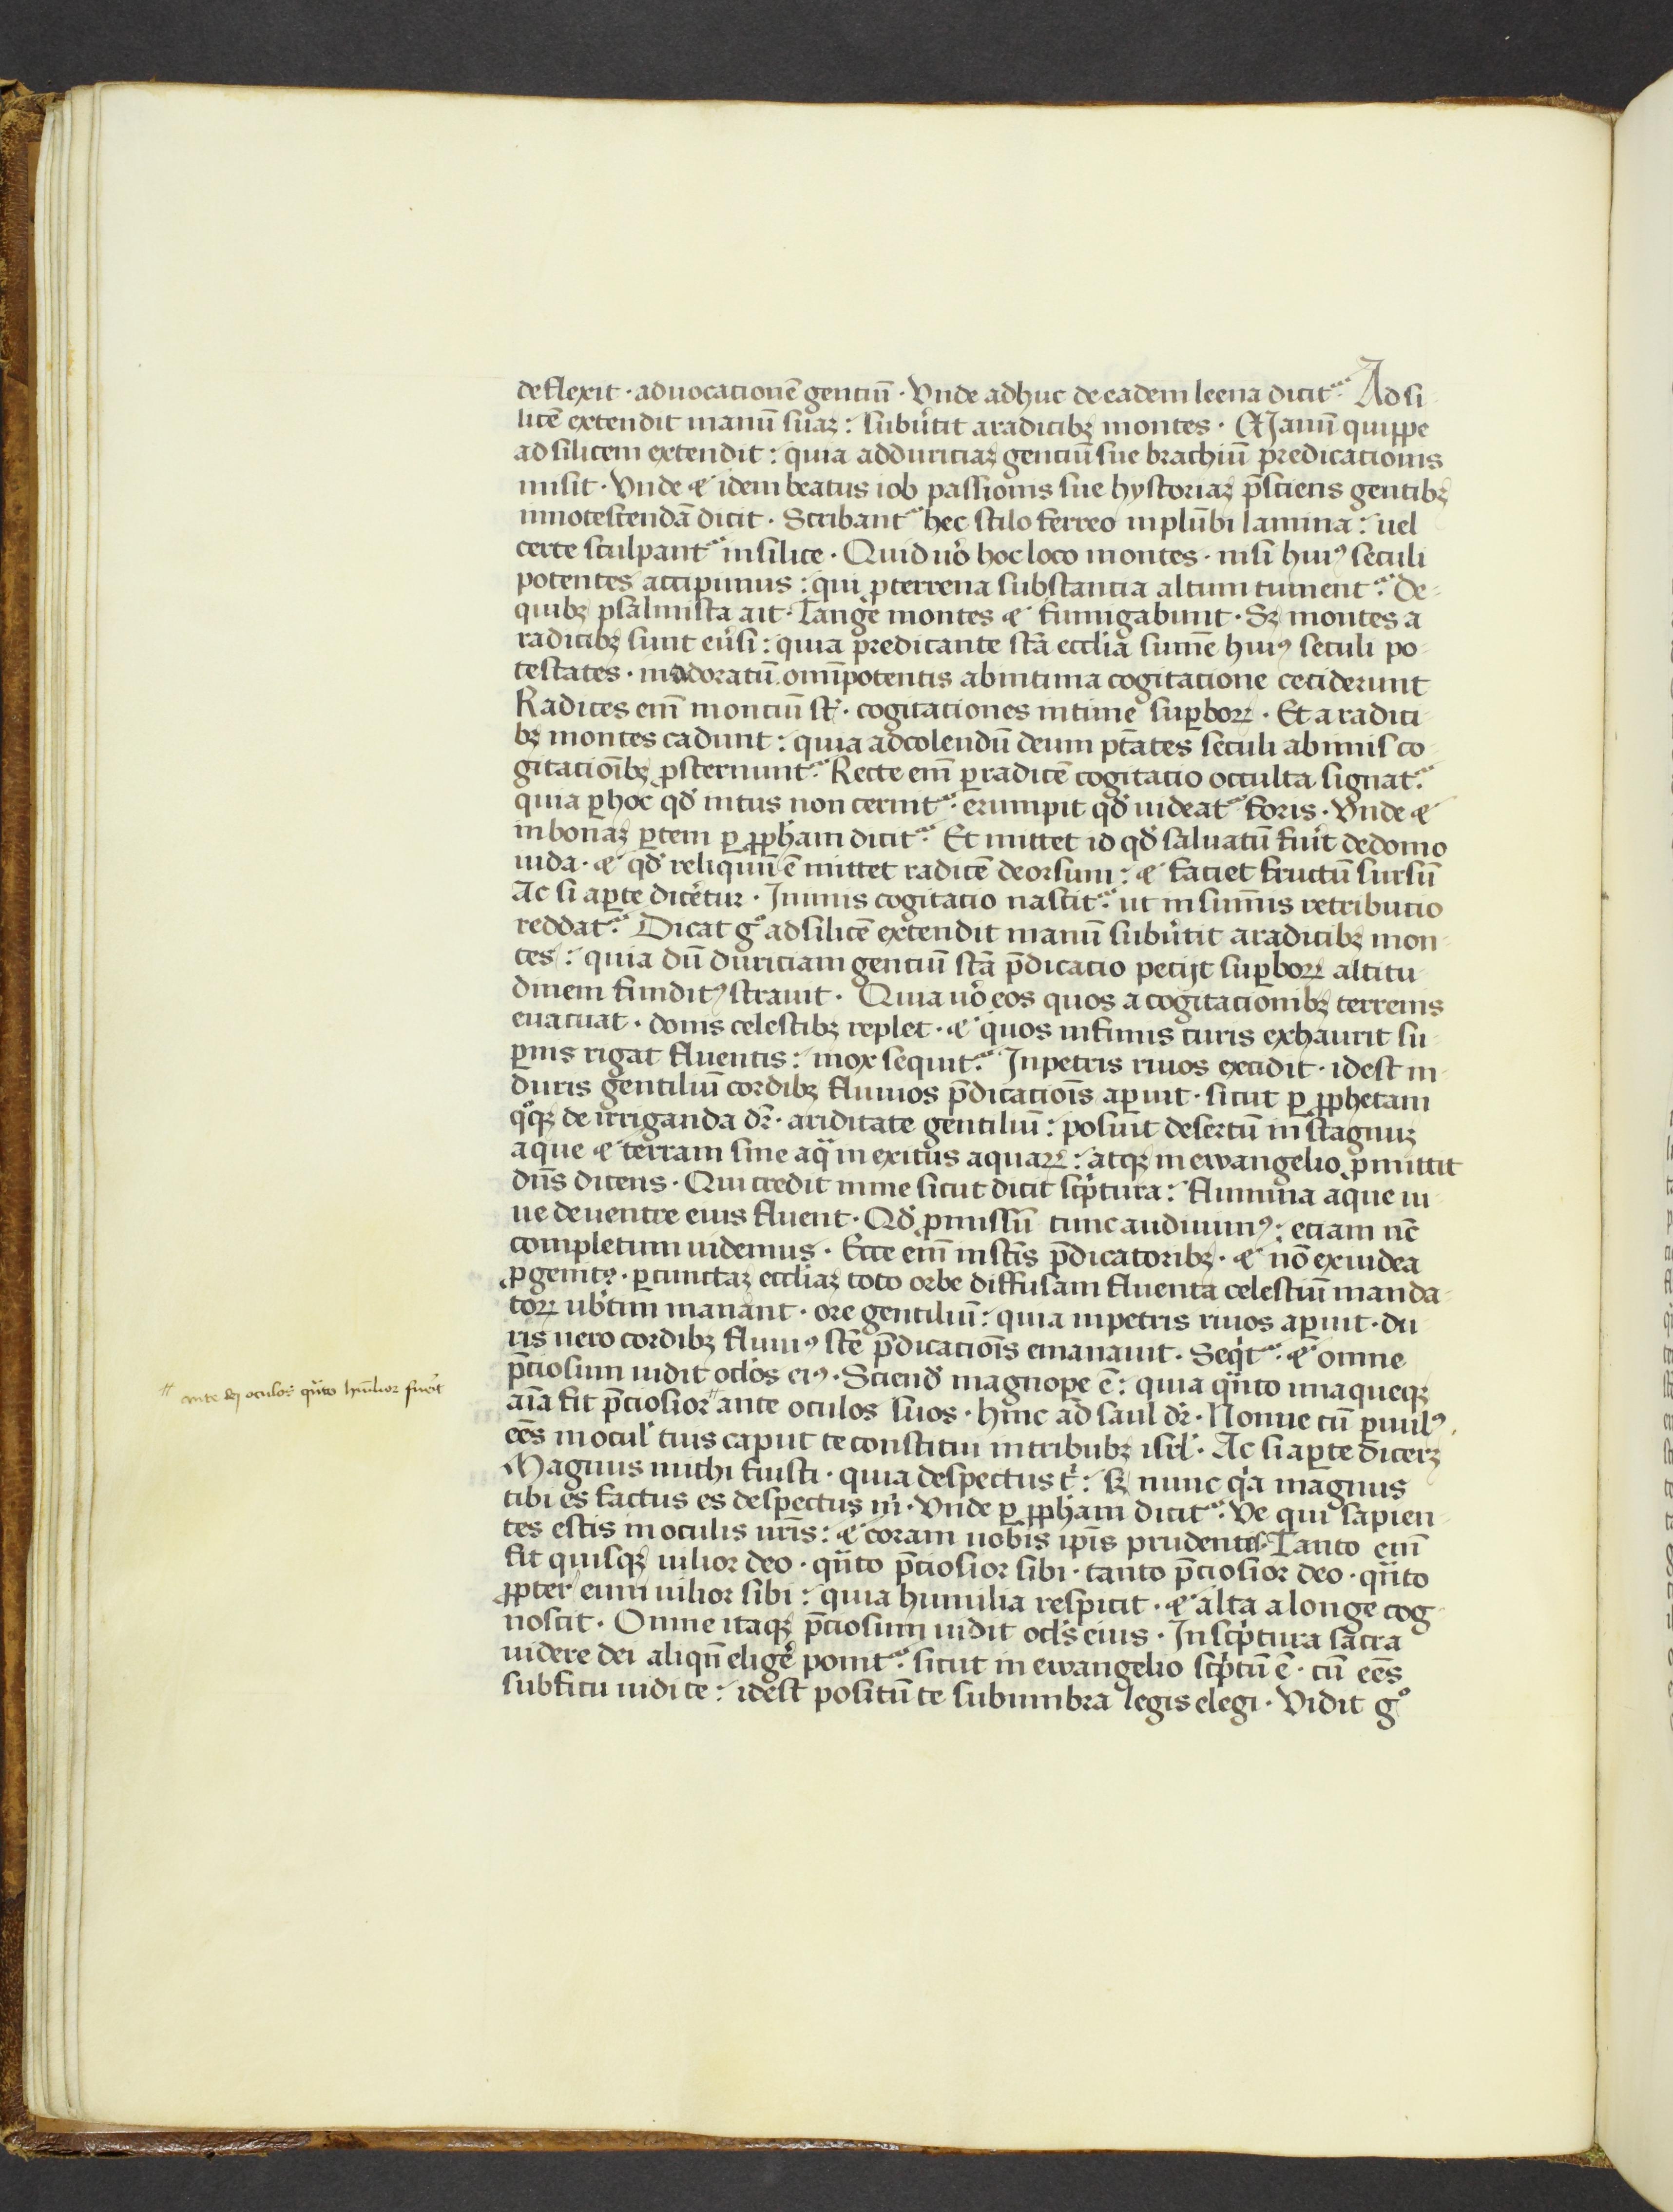 deflexit · aduocationē gentiū · Vnde adhuc de eadem leena dicit᷑ · Ad si
licē extendit manū suaꝫ : subu̓tit aradicibꝫ montes · Manū quippe
ad silicem extendit : quia adduriciaꝫ gentiū sue brachiū predicationis
misit · Vnde ⁊ idem beatus iob passionis sue hystoriaꝫ p̄sciens gentibꝫ
innotescendā dicit · Scribant᷑ hec stilo ferreo inplūbi lamina : uel
certe sculpant᷑ insilice · Quid uo̓ hoc loco montes · nisi huiꝰ seculi
potentes accipimus : qui ꝓterrena substancia altum tument᷑ · De-
quibꝫ psalmista ait · Tange montes ⁊ fumigabunt · Sꝫ montes a
radicibꝫ sunt eu̓si : quia predicante sc̄ā eccl̓ia sūme huiꝰ seculi po-
testates · inadoratū omīpotentis abintima cogitatione ceciderunt
Radices eīm montiū st̓ · cogitationes intime suꝑboꝝ · Et a radici-
bꝫ montes cadunt : quia adcolendū deum ptātes seculi abimis co-
gitatiōibꝫ ꝓsternunt᷑ · Recte eīm ꝑradicē cogitatio occulta signat᷑ ·
quia ꝑhoc qd̓ intus non cernit᷑ · erumpit qd̓ uideat᷑ foris · Vnde ⁊
inbonaꝫ ꝑtem ꝑ ꝓph̓am dicit᷑ · Et mittet id qd̓ saluatū fu̓it dedomo
iuda · ⁊ qd̓ reliquū ē mittet radicē deorsum : ⁊ faciet fructū sursū
Ac si aꝑte dicet̓ur · Inimis cogitatio nascit᷑ · ut insūmis retributio
reddat᷑ · Dicat gͦ adsilicē extendit manū subu̓tit aradicibꝫ mon-
tes : quia dū duriciam gentiū sc̄ā p̄dicatio petijt suꝑboꝝ altitu-
dinem funditꝰ strauit · Quia uo̓ eos quos a cogitationibꝫ terrenis
euacuat · donis celestibꝫ replet · ⁊ quos infimis curis exhaurit su-
ꝑnis rigat fluentis : mox sequit᷑ · Inpetris riuos excidit · idest in-
duris gentiliū cordibꝫ fluuios p̄dicatiōis aꝑuit · sicut ꝑ ꝓphetam
qͦqꝫ de irriganda dr̓ · ariditate gentiliū : posuit desertū in stagnuꝫ
aque ⁊ terram sine aqͣ in exitus aquaꝝ : atqꝫ in ewangelio ꝓmittit
dn̄s dicens · Qui credit inme sicut dicit scp̓tura : flumina aque ui-
ue deuentre eius fluent · Qd̓ ꝓmissū tunc audiuimꝰ : etiam nc̄
completum uidemus · Ecce eīm insc̄īs p̄dicatoribꝫ · ⁊ nō exiudea
ꝓgenitꝰ · ꝑcunctaꝫ eccl̓iaꝫ toto orbe diffusam fluenta celestiū manda-
toꝝ ub̓tim manant · ore gentiliū : quia inpetris riuos aꝑuit · du-
ris uero cordibꝫ fluuiꝰ sc̄ē p̄dicatiōis emanauit · Seqͥt᷑ · ⁊ omne
p̄ciosum uidit ocl̓os eiꝰ · Sciend̓ magnopꝑe ē : quia qͣnto unaqueqꝫ
aīa fit p̄ciosior // ante oculos suos · hinc ad saul dr̓ · Nonne cū ꝑuulꝰ
eēs inocul̓ tuis caput te constitui intribubꝫ isrl̓ · Ac si aꝑte dicerꝫ
Magnus michi fuisti · quia despectus t̓ : sꝫ nunc qͥa magnus
tibi es factus es despectus m̓ · Vnde ꝑ ꝓph̓am dicit᷑ · Ve qui sapien-
tes estis inoculis ur̄is : ⁊ coram uobis ip̄is prudentes · Tanto eīm
fit quisqꝫ uilior deo · qͣnto p̄ciosior sibi · tanto p̄ciosior deo · qͣnto
ꝓpter eum uilior sibi : quia humilia respicit · ⁊ alta alonge cog-
noscit · Omne itaqꝫ p̄ciosum uidit ocl̓s eius · Inscp̓tura sacra
uidere dei aliqn̄ elige̓ ponit᷑ · sicut in ewangelio scp̓tū ē · cū eēs
subficu uidi te : idest positū te subumbra legis elegi · Vidit gͦ
// ante dei oculos qͣnto hūīlior fuer̓it